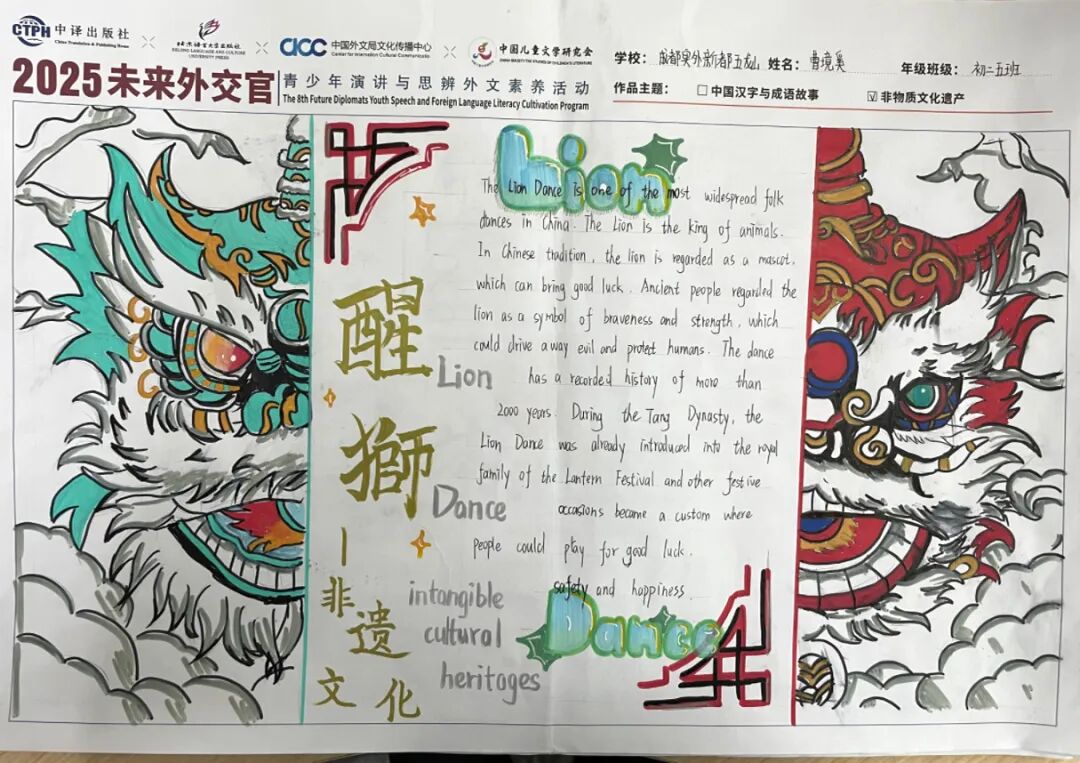 CTPH 中译出版社
China Translation & Publishing House
北京语言大学出版社
BEIJING LANGUAGE AND CULTURE UNIVERSITY PRESS
CICC 中国外文局文化传播中心
Center for International Cultural Communication
中国儿童文学研究会
CHINA SOCIETY THE STUDIES OF CHILDREN'S LITERATURE
学校：成都 外新都五龙山 姓名：曹境 年级班级：初二五班
2025未来外交官 青少年演讲与思辨外文素养活动
The 8th Future Diplomats Youth Speech and Foreign Language Literacy Cultivation Program
作品主题： □ 中国汉字与成语故事 ☑ 非物质文化遗产
Lion
The Lion Dance is one of the most widespread folk
dances in China. The Lion is the king of animals.
In Chinese tradition, the lion is regarded as a mascot,
which can bring good luck. Ancient people regarded the
lion as a symbol of braveness and strength, which
could drive away evil and protect humans. The dance
has a recorded history of more than
2000 years. During the Tang Dynasty, the
Lion Dance was already introduced into the royal
family of the Lantern Festival and other festive
occasions became a custom where
people could play for good luck.
safety and happiness
Dance
醒
獅
一
非
遗
文化
Lion
Dance
intangible
cultural
heritages